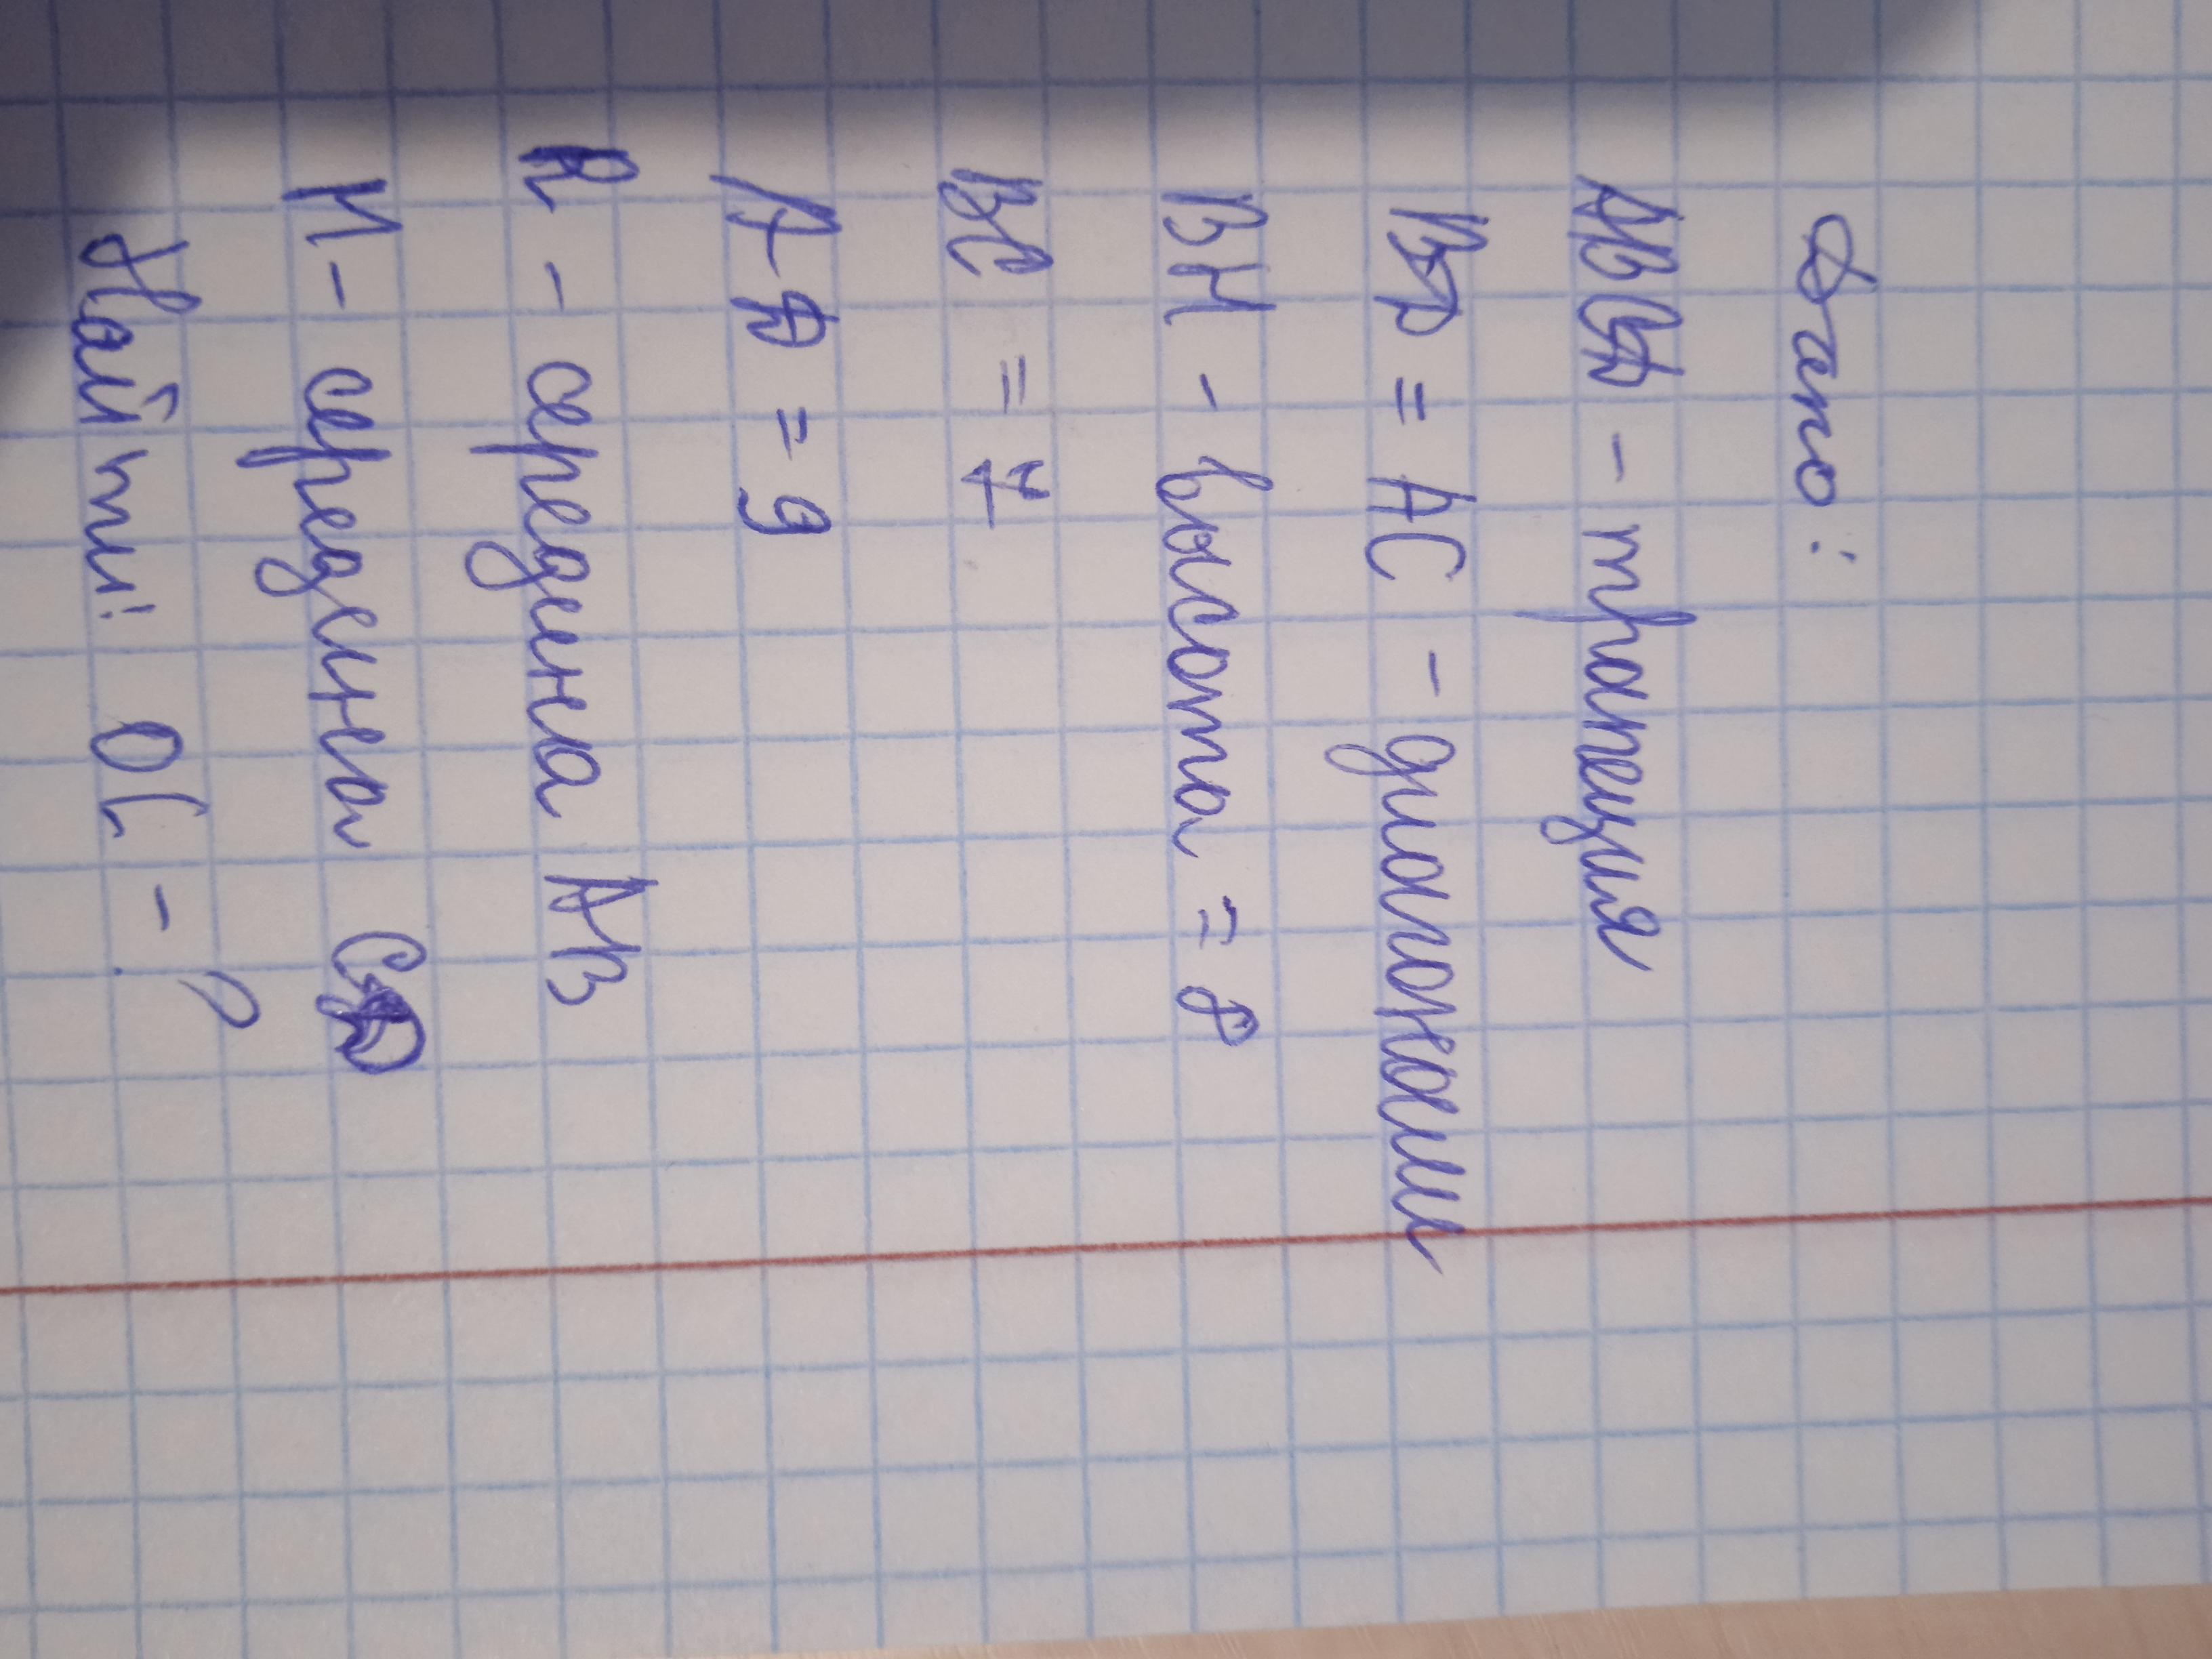 Дано:
ABCD - трапеция
BD = AC - диагонали
BH - высота = 8
BC = 7
AD = 9
K - середина AB
M - середина CD
Найти: OL - ?